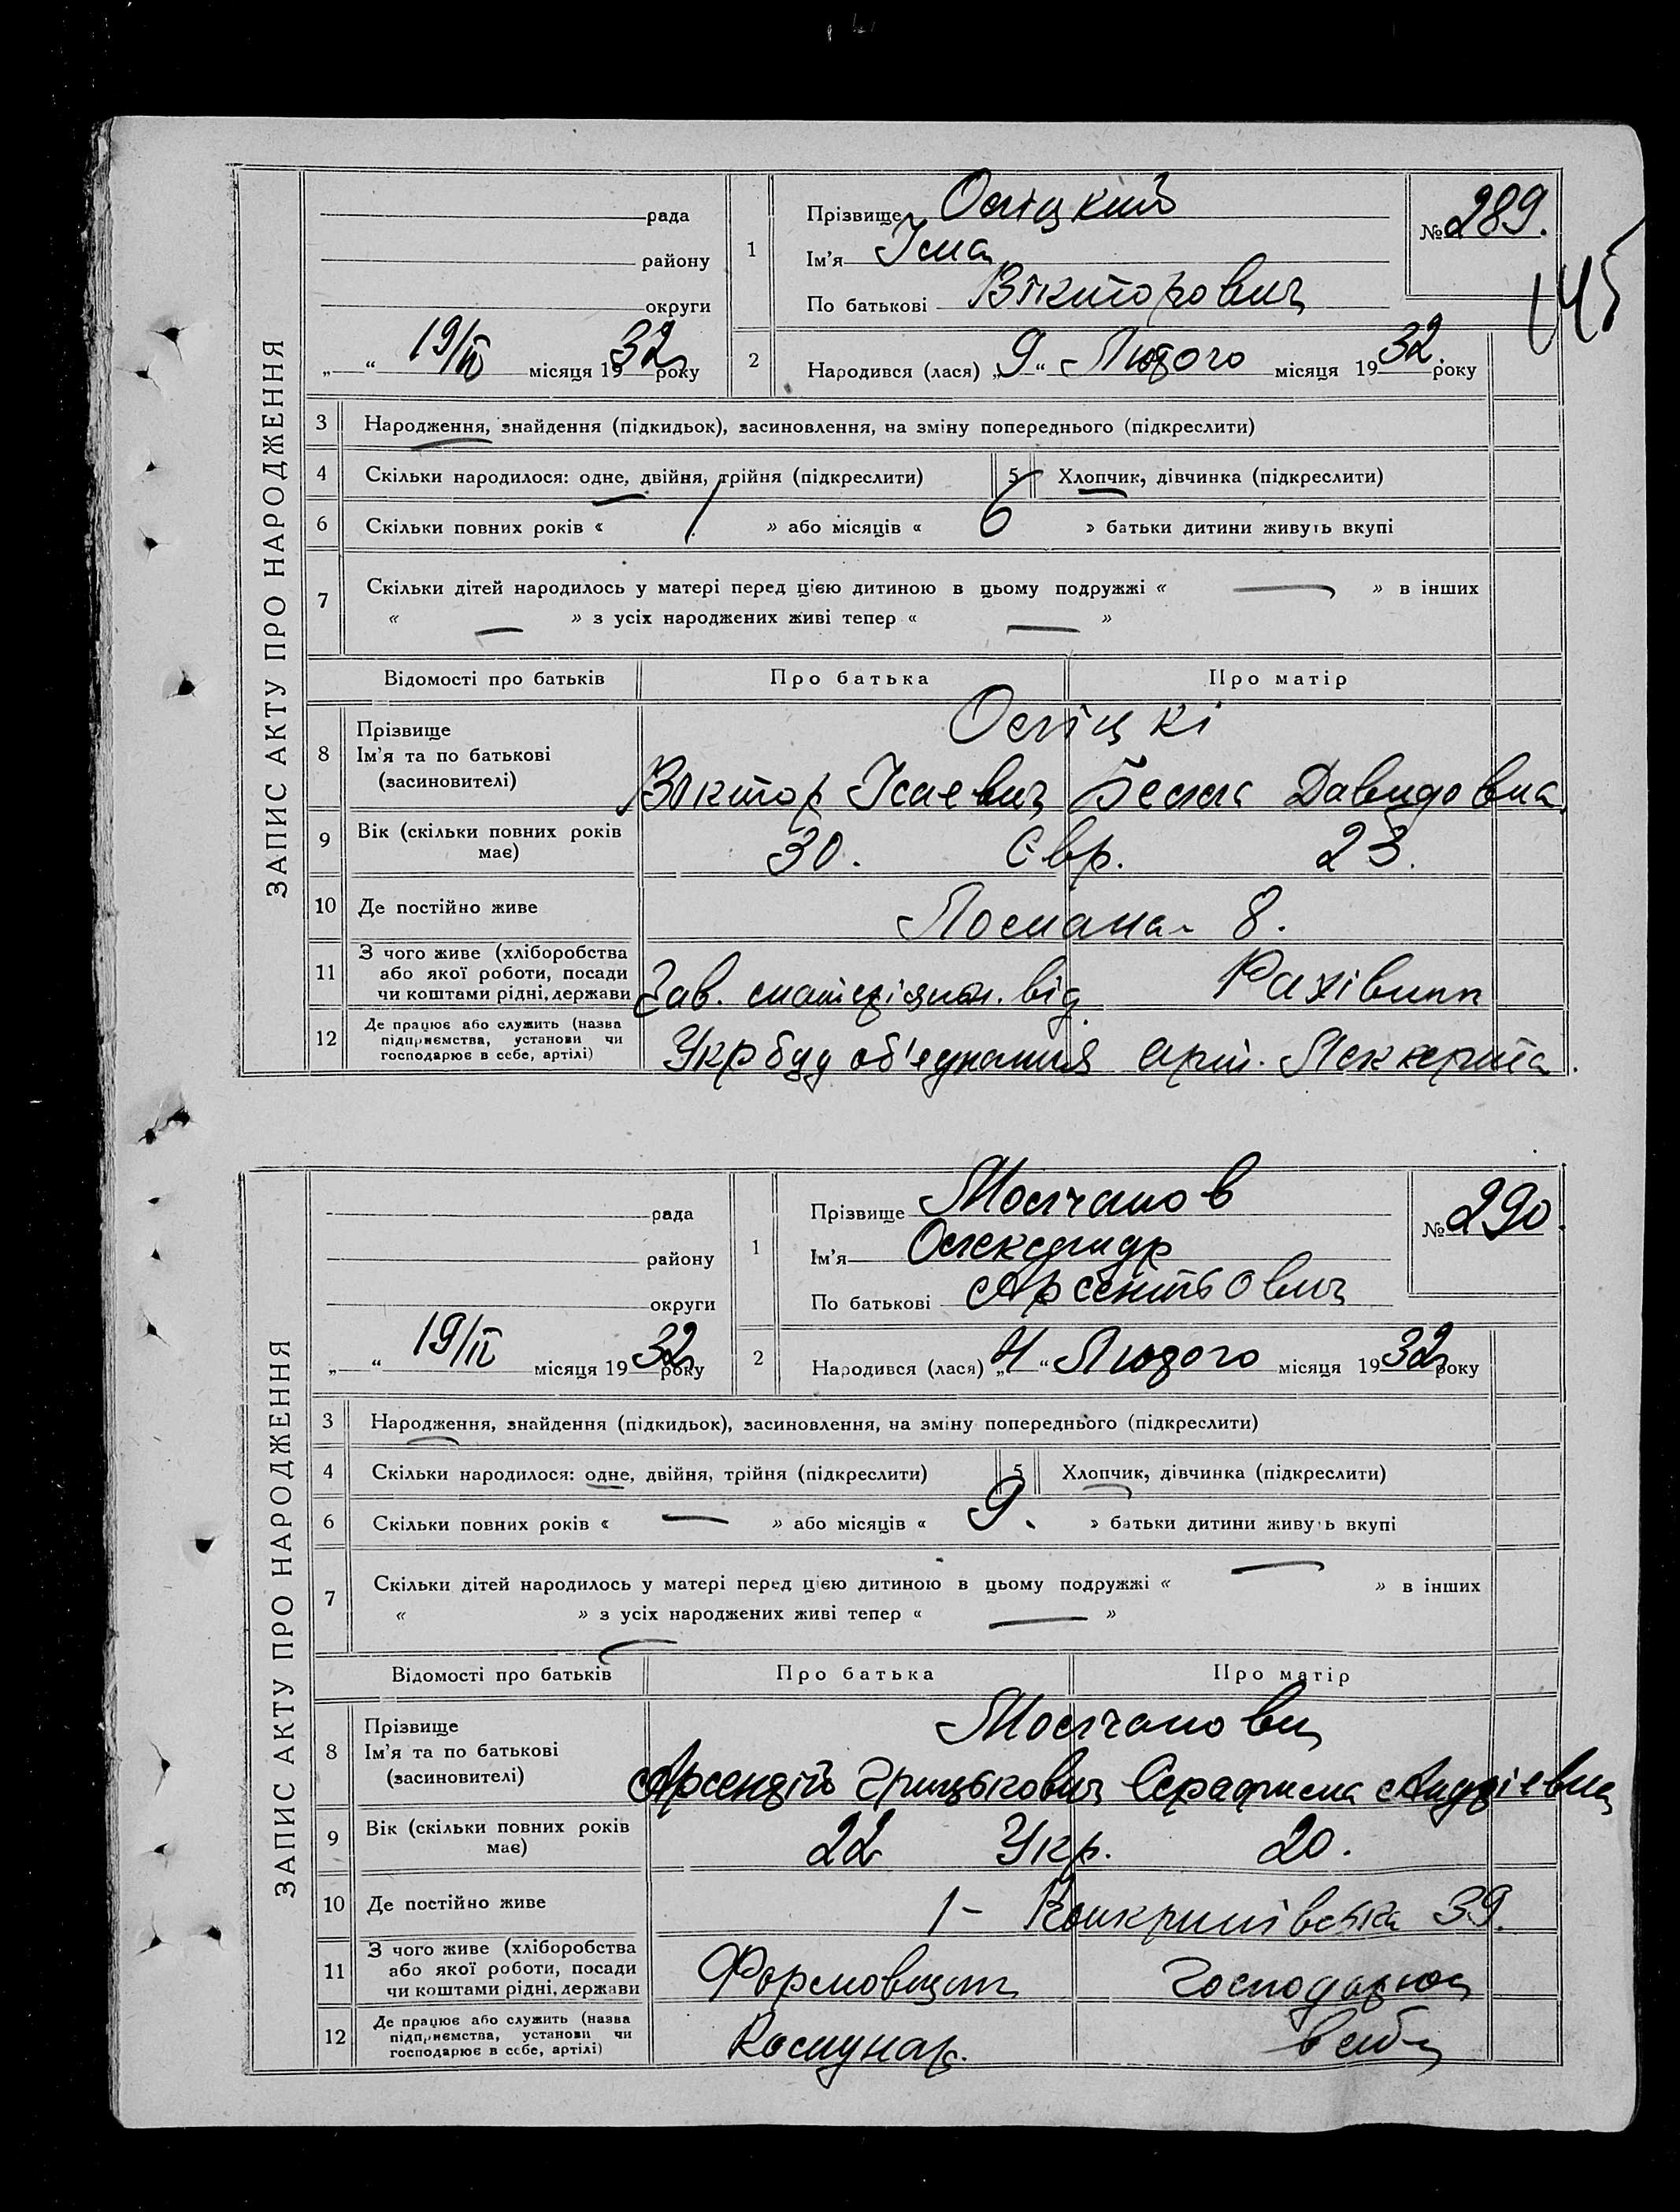 ЗАПИС АКТУ ПРО НАРОДЖЕННЯ
рада
району
округи
„ “ 19/ІІ місяця 1932 року
1
Прізвище
Ім'я Ісма
По батькові Вікторович
№ 289.
145
2
Народився (лася) „9“ Лютого місяця 1932. року
3 Народження, знайдення (підкидьок), засиновлення, на зміну попереднього (підкреслити)
4 Скільки народилося: одне, двійня, трійня (підкреслити)
5 Хлопчик, дівчинка (підкреслити)
6 Скільки повних років « 1 » або місяців « 6 » батьки дитини живуть вкупі
7 Скільки дітей народилось у матері перед цією дитиною в цьому подружжі « — » в інших
« — » з усіх народжених живі тепер « — »
Відомості про батьків Про батька Про матір
8 Прізвище
Ім'я та по батькові
(засиновителі)
Віктор Ісаевич Давидовна
9 Вік (скільки повних років має) 30. Євр. 23.
10 Де постійно живе 8.
11 З чого живе (хліборобства або якої роботи, посади чи коштами рідні, держави
Зав. від.
12 Де працює або служить (назва підприємства, установи чи господарює в себе, артілі)
Укрбуд об'єднання арт.
ЗАПИС АКТУ ПРО НАРОДЖЕННЯ
рада
району
округи
„ “ 19/ІІ місяця 1932 року
1
Прізвище Молчанов
Ім'я Олександр
По батькові Арсентьович
№ 290.
2
Народився (лася) „4“ Лютого місяця 1932 року
3 Народження, знайдення (підкидьок), засиновлення, на зміну попереднього (підкреслити)
4 Скільки народилося: одне, двійня, трійня (підкреслити)
5 Хлопчик, дівчинка (підкреслити)
6 Скільки повних років « — » або місяців « 9. » батьки дитини живуть вкупі
7 Скільки дітей народилось у матері перед цією дитиною в цьому подружжі « — » в інших
« — » з усіх народжених живі тепер « — »
Відомості про батьків Про батька Про матір
8 Прізвище
Ім'я та по батькові
(засиновителі)
Молчанови
Арсентій Грицькович Серафима Андріевна
9 Вік (скільки повних років має) 22 Укр. 20.
10 Де постійно живе 1- 39.
11 З чого живе (хліборобства або якої роботи, посади чи коштами рідні, держави
Формовщик Господарює
12 Де працює або служить (назва підприємства, установи чи господарює в себе, артілі)
Комунар. в себе